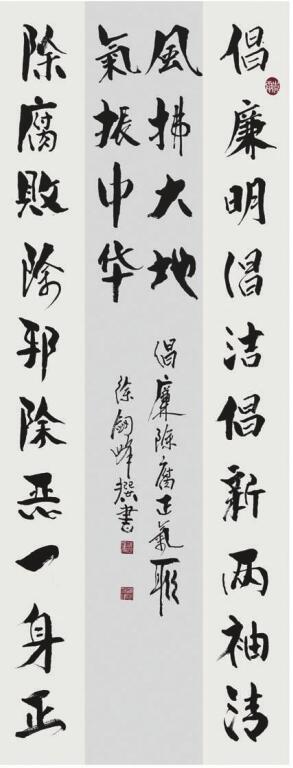 倡廉明倡洁倡新两袖清
風拂大地
氣振中华
倡廉除腐正氣联
徐劍峰撰書
除腐敗除邪除恶一身正